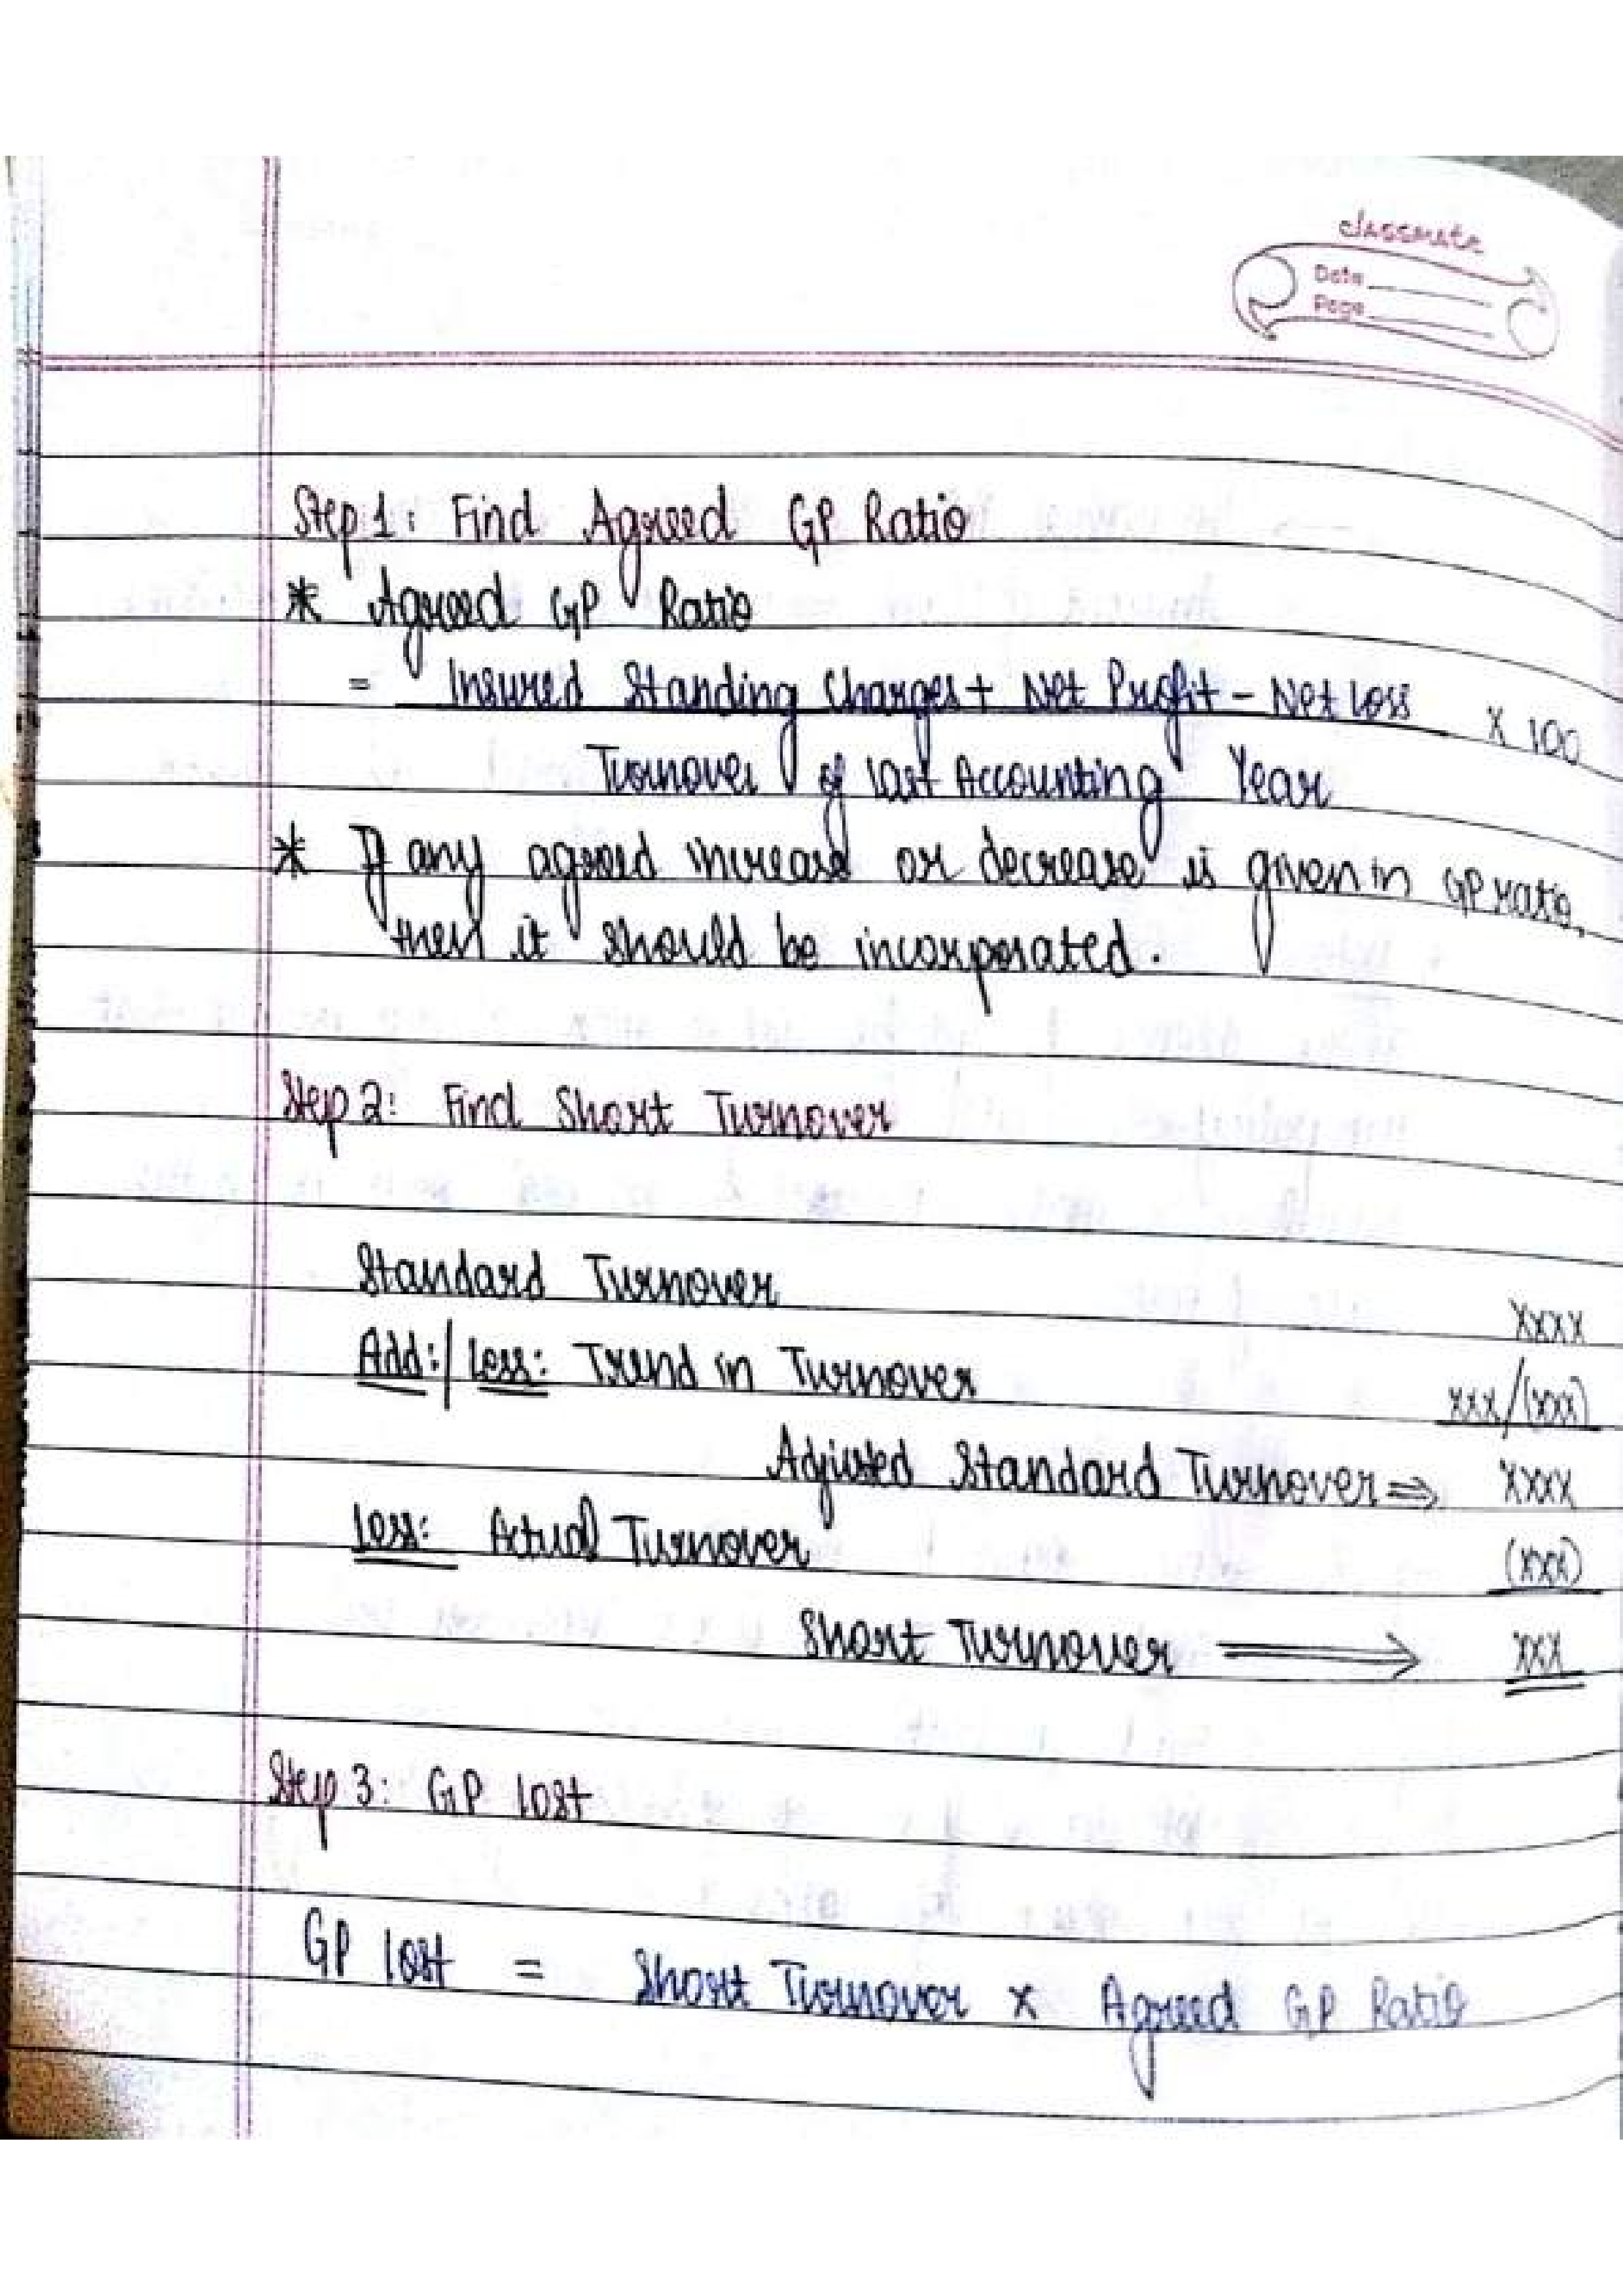 classmate
Date
Page
Step 1: Find Agreed GP Ratio
* Agreed GP Ratio
= Insured Standing Charges + Net Profit - Net Loss X 100
Turnover of last Accounting Year
* If any agreed increase or decrease is given in GP ratio,
then it should be incorporated.
Step 2: Find Short Turnover
Standard Turnover xxxx
Add:/Less: Trend in Turnover xxx/(xxx)
Adjusted Standard Turnover ⇒ xxxx
Less: Actual Turnover (xxx)
Short Turnover ⟹ xxx
Step 3: GP lost
GP lost = Short Turnover x Agreed GP Ratio